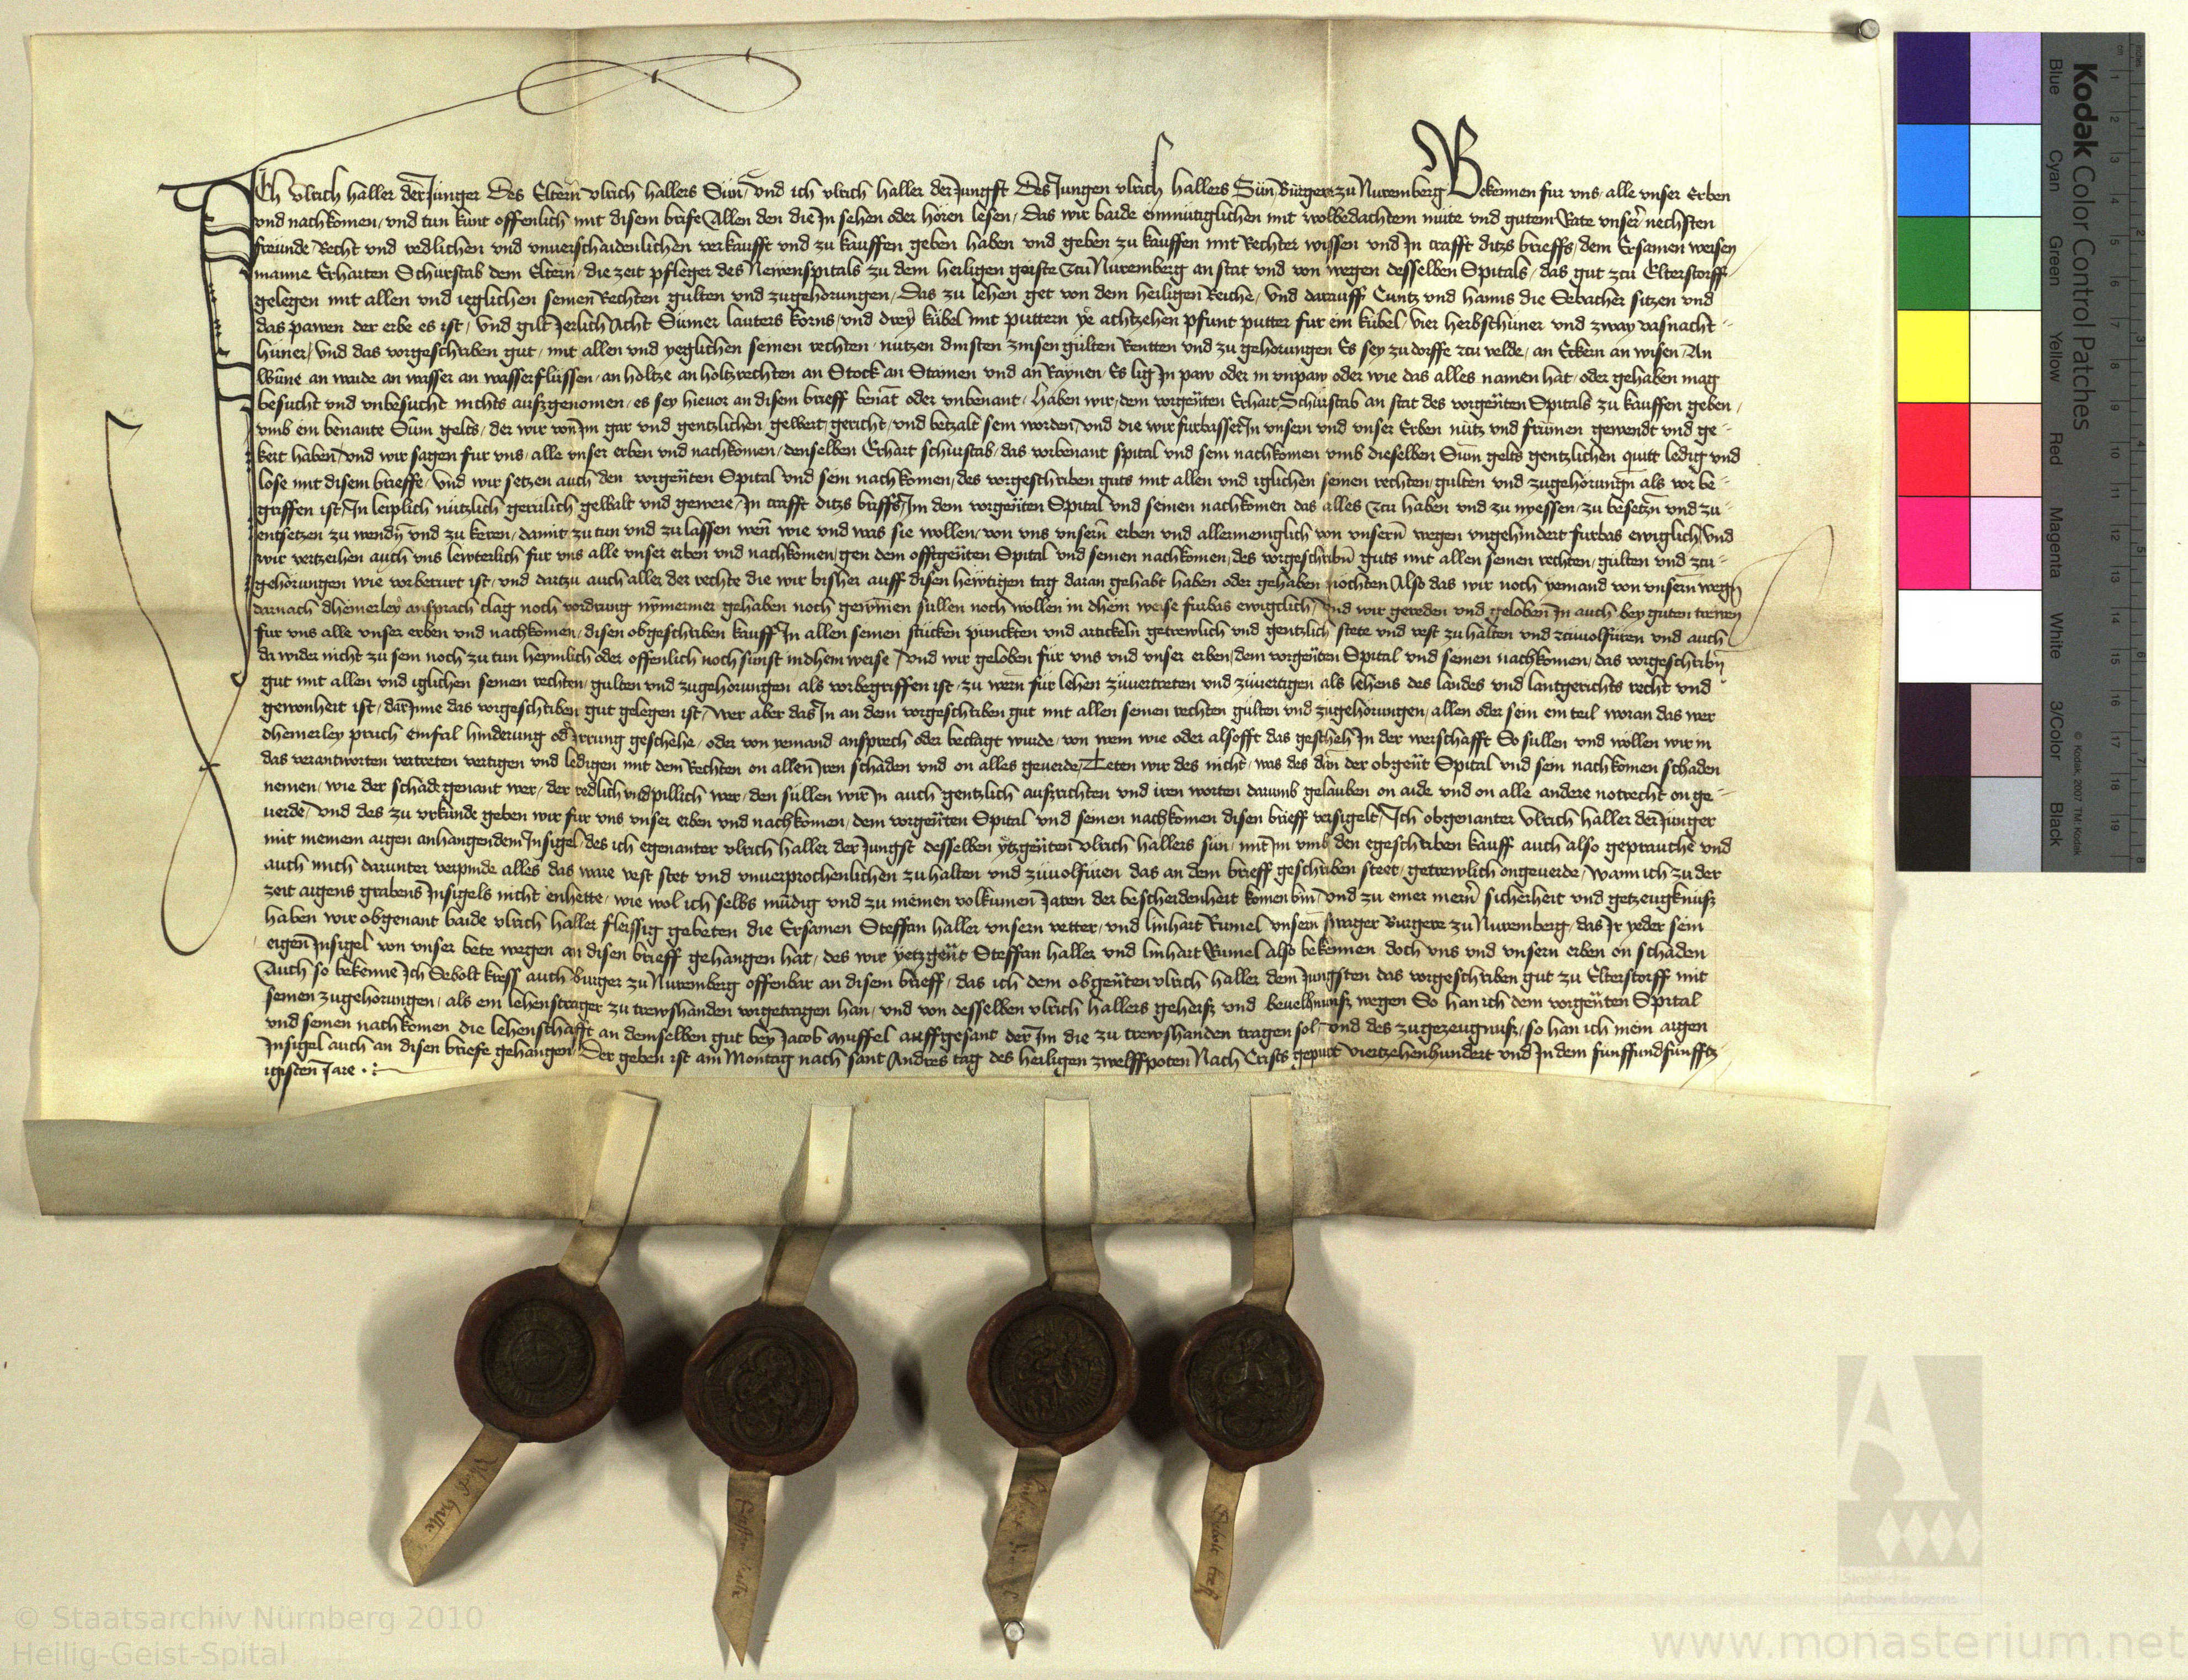 Ich vlrich haller der Junger Des Eltern vlrich hallers Sun, vnd ich vlrich haller der Jungst Des Jungen vlrich hallers Sun Burgere zu Nuremberg Bekennen fur vns, alle vnser Erben
vnd nachkomen, vnd tun kunt offenlich mit disem briefe Allen den die Jn sehen oder horen lesen, Das wir baide einmutiglichen mit wolbedachtem mute vnd gutem Rate vnser nechsten
freunde Recht vnd redlichen vnd vnuerschaidenlichen verkaufft vnd zu kauffen geben haben vnd geben zu kauffen mit Rechter wissen vnd Jn crafft ditzs brieffs, dem Ersamen weisen
manne Erharten Schurstab dem Eltern, die zeit pfleger des Newenspitals zu dem heiligen geiste zcu Nuremberg an stat vnd von wegen desselben Spitals, das gut zcu Elterstorff
gelegen mit allen vnd ieglichen seinen Rechten gulten vnd zugehorungen, Das zu lehen get von dem heiligen Reiche, vnd darauff Cuntz vnd hanns die Erbacher sitzen vnd
das pawen der erbe es ist, vnd gilt Jerlich Acht Sumer lauters korns, vnd drey kubel mit puttern ye achtzehen pfunt putter fur ein kubel, vier herbsthuner vnd zway vasnacht-
huner, vnd das vorgeschriben gut, mit allen vnd yeglichen seinen rechten, nutzen dinsten zinsen gulten Rentten vnd zu gehorungen Es sey zu dorffe zcu velde, an Eckern an wisen, An
Wune an waide an wasser an wasserflussen, an holtze an holtzrechten an Stock an Stainen vnd an Raynen, Es lig Jn paw oder in vnpaw oder wie das alles namen hat, oder gehaben mag
besucht vnd vnbesucht nichts aufzgenomen, es sey hieuor an disem brieff benant oder vnbenant, haben wir, dem vorgenten Erhart Schurstab an stat des vorgenten Spitals zu kauffen geben,
vmb ein benante Sum gelts, der wir von Jm gar vnd gentzlichen gewert, gericht, vnd betzalt sein worden, vnd die wir furbasser Jn vnsern vnd vnser Erben nutz vnd frumen gewendt vnd ge-
kert haben, vnd wir sagen fur vns, alle vnser erben vnd nachkomen, denselben Erhart schurstab, das vorbenant spital vnd sein nachkomen vmb dieselben Sum gelts gentzlichen quitt ledig vnd
lose mit disem brieffe, Vnd wir setzen auch den vorgenten Spital vnd sein nachkomen, des vorgeschriben guts mit allen vnd iglichen seinen rechten, gulten vnd zugehorungen als vor be-
griffen ist, Jn leiplich nutzlich gerulich gewalt vnd gewere, Jn crafft ditzs brieffs, Jm dem vorgenten Spital vnd seinen nachkomen das alles zcu haben vnd zu nyessen, zu besetzn vnd zu-
entsetzen zu wendn vnd zu keren, damit zu tun vnd zu lassen wen wie vnd was sie wollen, von vns vnsern erben vnd allermeniglich von vnsern wegen vngehindert furbas ewiglich, Vnd
wir vertzeihen auch vns lewterlich fur vns alle vnser erben vnd nachkomen, gen dem offtgenten Spital vnd seinen nachkomen, des vorgeschribn guts mit allen seinen rechten, gulten vnd zcu-
gehorungen wie vorberurt ist, vnd dartzu auch aller der rechte die wir bisher auff disen hewtigen tag daran gehabt haben oder gehaben mochten Also das wir noch yemand von vnsern wegn
darnach dheinerley ansprach clag noch vordrung nymermer gehaben noch gewinnen sullen noch wollen in dhein weise furbas ewigclich, Vnd wir gereden vnd geloben Jn auch bey guten trewen
fur vns alle vnser erben vnd nachkomen, disen obgeschriben kauff Jn allen seinen stucken punckten vnd artickeln getrewlich vnd gentzlich stete vnd vest zu halten vnd zcuuolfuren vnd auch
da wider nicht zu sein noch zu tun heymlich oder offenlich noch sunst in dhein weise, Vnd wir geloben fur vns vnd vnser erben, dem vorgenten Spital vnd seinen nachkomen, das vorgeschribn
gut mit allen vnd iglichen seinen rechten, gulten vnd zugehorungen als vorbegriffen ist, zu wern fur lehen zuuertreten vnd zuuertigen als lehens des landes vnd lantgerichts recht vnd
gewonheit ist, dar Jnne das vorgeschriben gut gelegen ist, Wer aber das Jn an dem vorgeschriben gut mit allen seinen rechten gulten vnd zugehorungen, allen oder sein ein teil woran das wer
dheinerley pruch einfal hinderung oder Jrrung geschehe, oder von yemand ansprech oder beclagt wurde, von wem wie oder alsofft das geschch Jn der werschafft So sullen vnd wollen wir in
das verantworten vertreten vertigen vnd ledigen mit dem Rechten on allen Jren schaden vnd on alles geuerde, Teten wir des nicht, was des dan der obgent Spital vnd sein nachkomen schaden
nemen, wie der schade genant wer, der redlich vnd pillich wer, den sullen wir Jn auch gentzlich aufzrichten vnd iren worten darumb gelauben on aide vnd on alle andere notrecht on ge-
uerde, Vnd des zu vrkunde geben wir fur vns vnser erben vnd nachkomen, dem vorgenten Spital vnd seinen nachkomen disen brieff versigelt, Ich obgenanter vlrich haller der Junger
mit meinem aigen anhangendem Jnsigel, des ich egenanter vlrich haller der Jungst desselben ytzgenten vlrich hallers sun, mit Jm vmb den egeschriben kauff auch also geprauche vnd
auch mich darunter verpinde alles das ware vest stet vnd vnuerprochenlichen zu halten vnd zuuolfuren das an dem brieff geschriben steet, getrewlich ongeuerde, Wann ich zu der
zeit aigens grabens Jnsigels nicht enhette, wie wol ich selbs mudig vnd zu meinen volkumen Jaren der bescheidenheit komen bin, vnd zu einer mern sicherheit vnd getzeugknusz
haben wir obgenant baide vlrich haller fleissig gebeten die Ersamen Steffan haller vnsern vetter, vnd linhart Rumel vnsern swager Burgere zu Nuremberg, das Jr yeder sein
eigen Jnsigel von vnser bete wegen an disen brieff gehangen hat, des wir yetzgent Steffan haller vnd linhart Rumel also bekennen doch vns vnd vnsern erben on schaden
Auch so bekenne Ich Sebolt kress auch Burger zu Nuremberg offenbar an disem brieff, das ich dem obgenten vlrich haller dem Jungsten das vorgeschriben gut zu Elterstorff mit
seinen zugehorungen, als ein lehenstrager zu trewshanden vorgetragen han, vnd von desselben vlrich hallers geheisz vnd beuelhnusz wegen So han ich dem vorgenten Spital
vnd seinen nachkomen die lehenschafft an demselben gut bey Jacob Muffel auffgesant der Jm die zu trewshanden tragen sol, Vnd des zu gezeugnusz, so han ich mein aigen
Jnsigel auch an disen briefe gehangen, Der geben ist am Montag nach sant Andres tag des heiligen zwelffpoten Nach Crists gepurt viertzehenhundert vnd Jn dem funffundfunfftz
igisten Jare
Vlrich haller
Steffan haller
Sebolt kresz
Kodak Color Control Patches
Blue Cyan Green Yellow Red Magenta White 3/Color Black
© Kodak, 2007 TM: Kodak
© Staatsarchiv Nürnberg 2010
Heilig-Geist-Spital
Staatliche
Archive Bayerns
www.monasterium.net